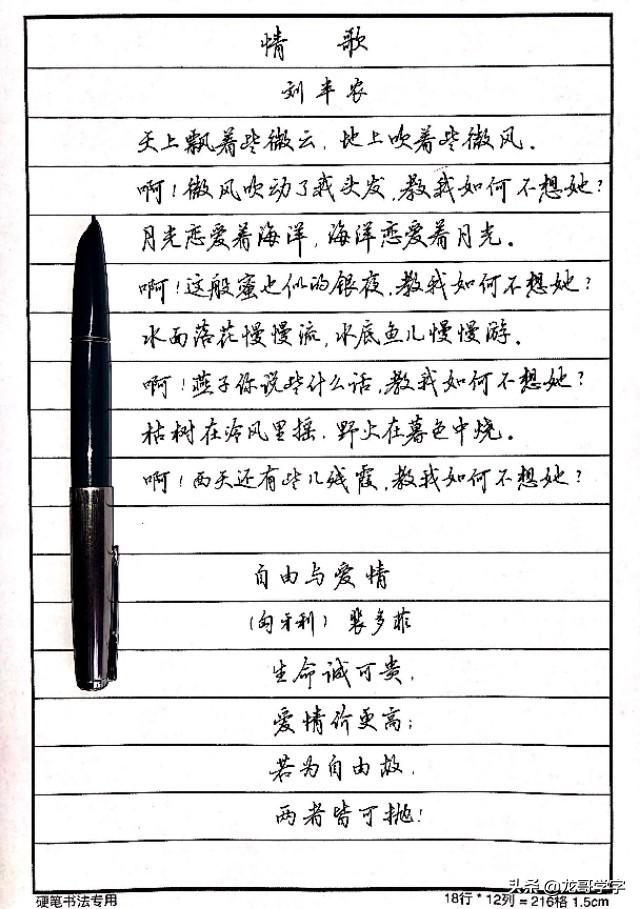 情歌
刘半农
天上飘着些微云，地上吹着些微风。
啊！微风吹动了我头发，教我如何不想她？
月光恋爱着海洋，海洋恋爱着月光。
啊！这般蜜也似的银夜，教我如何不想她？
水面落花慢慢流，水底鱼儿慢慢游。
啊！燕子你说些什么话，教我如何不想她？
枯树在冷风里摇，野火在暮色中烧。
啊！西天还有些儿残霞，教我如何不想她？
自由与爱情
（匈牙利）裴多菲
生命诚可贵，
爱情价更高；
若为自由故，
两者皆可抛！
硬笔书法专用
18行*12列=216格 1.5cm
头条 @龙哥学字